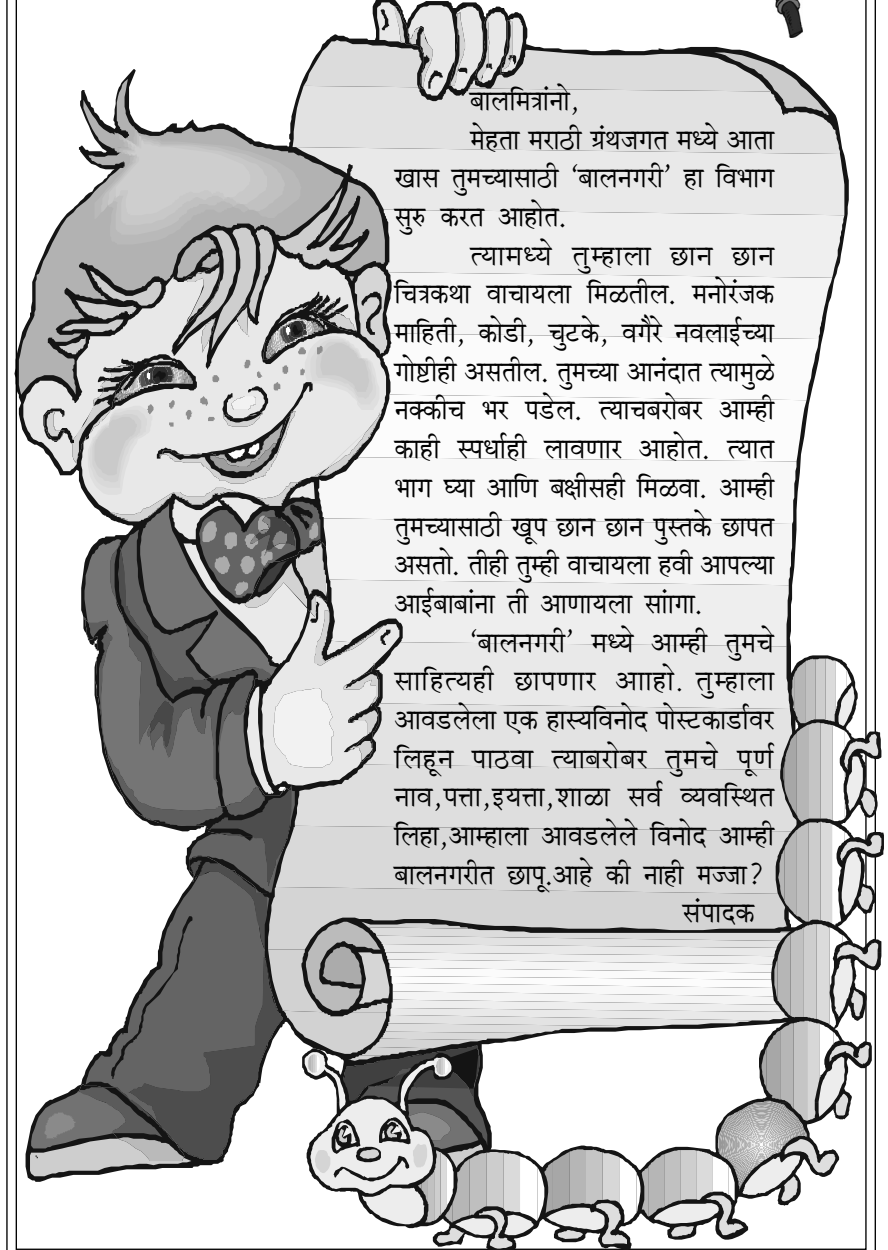 बालमित्रांनो,
मेहता मराठी ग्रंथजगत मध्ये आता
खास तुमच्यासाठी ‘बालनगरी’ हा विभाग
सुरु करत आहोत.
त्यामध्ये तुम्हाला छान छान
चित्रकथा वाचायला मिळतील. मनोरंजक
माहिती, कोडी, चुटके, वगैरे नवलाईच्या
गोष्टीही असतील. तुमच्या आनंदात त्यामुळे
नक्कीच भर पडेल. त्याचबरोबर आम्ही
काही स्पर्धाही लावणार आहोत. त्यात
भाग घ्या आणि बक्षीसही मिळवा. आम्ही
तुमच्यासाठी खूप छान छान पुस्तके छापत
असतो. तीही तुम्ही वाचायला हवी आपल्या
आईबाबांना ती आणायला सांगा.
‘बालनगरी’ मध्ये आम्ही तुमचे
साहित्यही छापणार आाहो. तुम्हाला
आवडलेला एक हास्यविनोद पोस्टकार्डावर
लिहून पाठवा त्याबरोबर तुमचे पूर्ण
नाव,पत्ता,इयत्ता,शाळा सर्व व्यवस्थित
लिहा,आम्हाला आवडलेले विनोद आम्ही
बालनगरीत छापू.आहे की नाही मज्जा?
संपादक